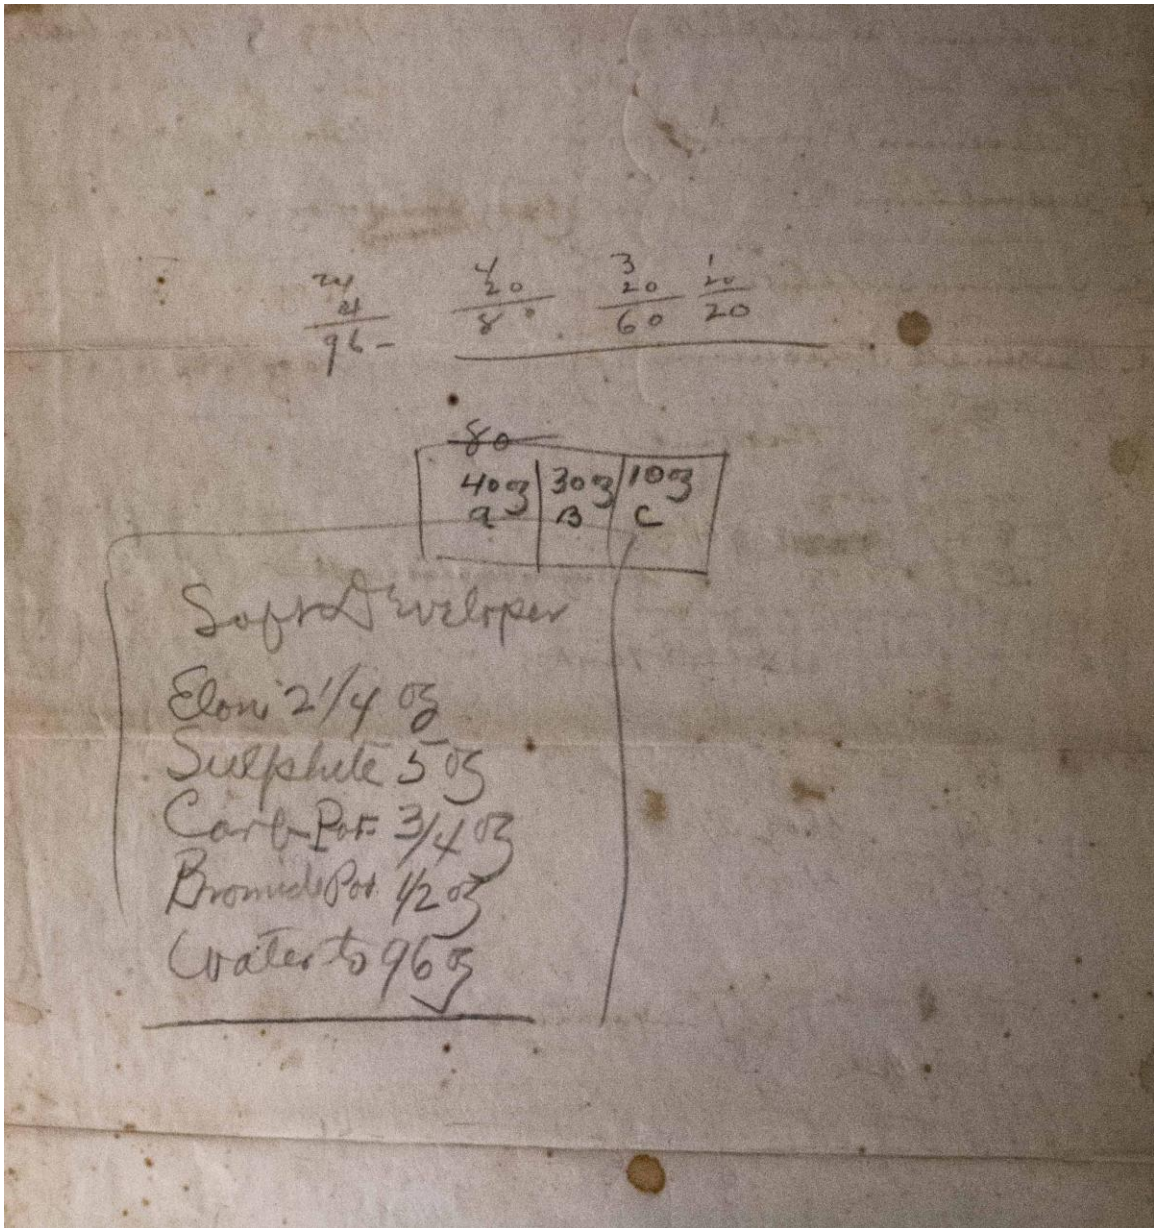 24 4 3 1
4 20 20 20
96- 80 60 20
80
40z 30z 10z
a B C
Soft Developer
Elon 2 1/4 oz
Sulphite 5 oz
Carb Pot 3/4 oz
Bromide Pot. 1/2 oz
Water to 96 oz